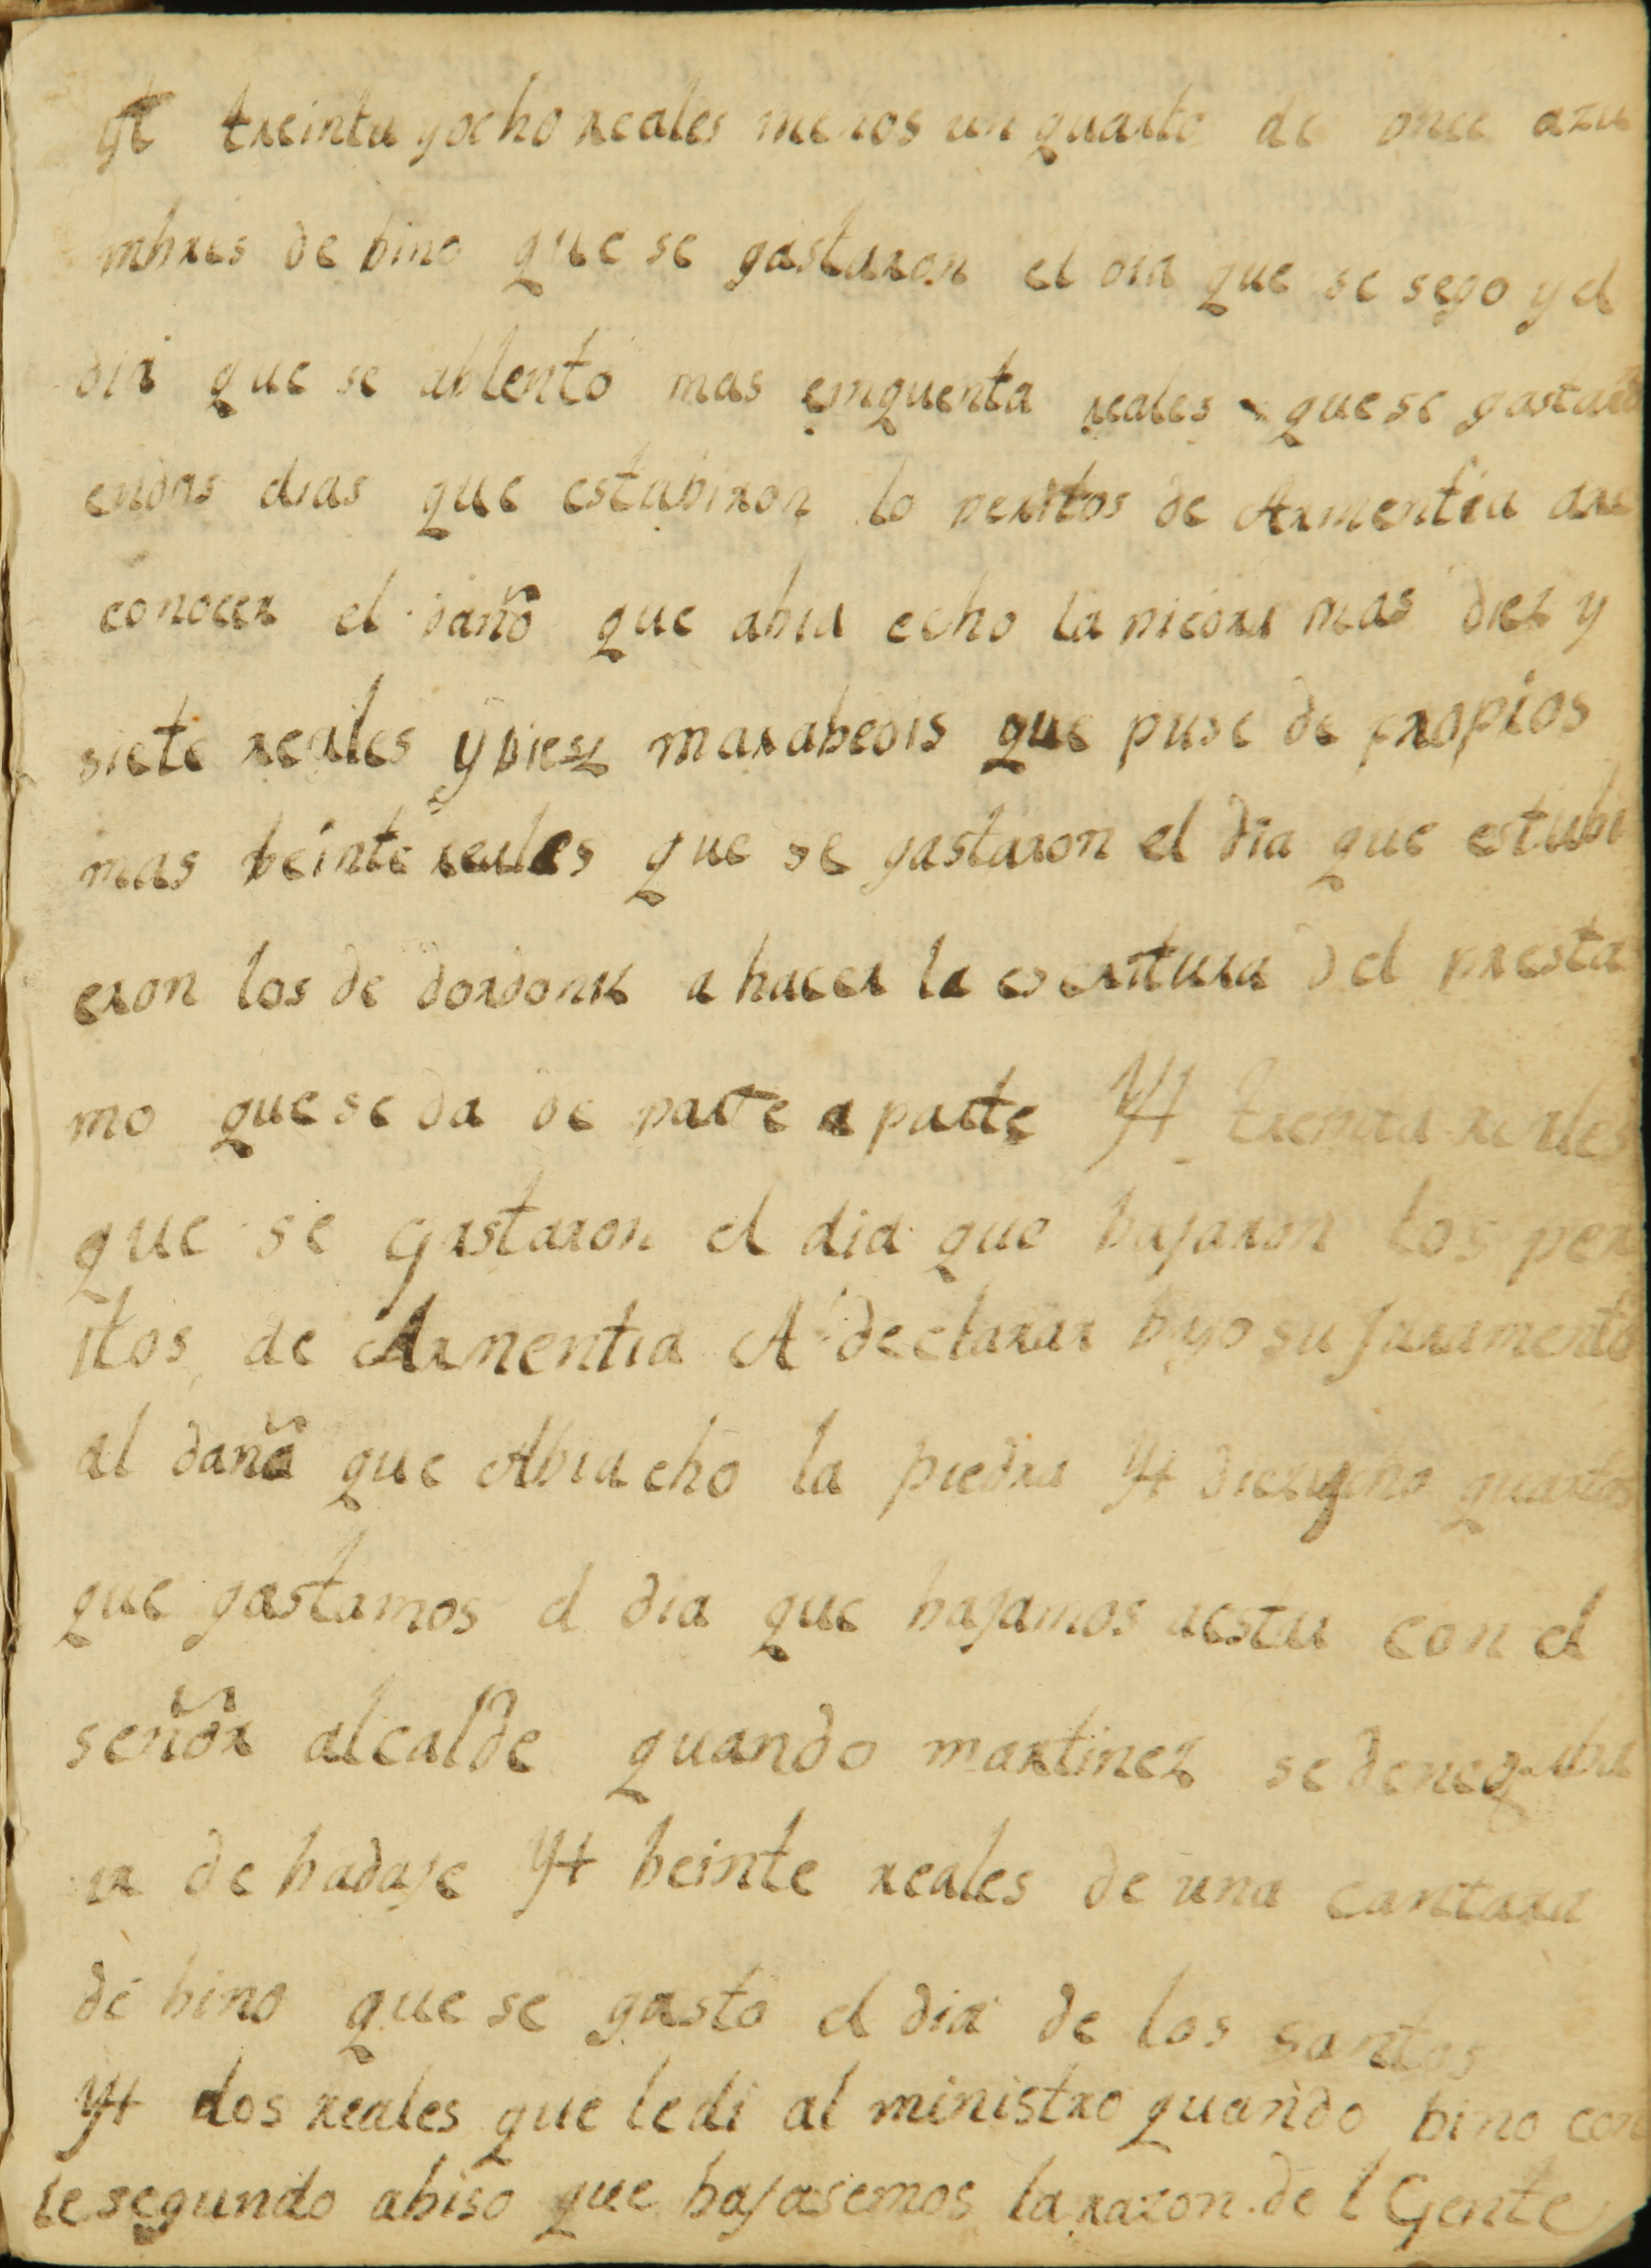 yt treinta y ocho reales menos un quarto de once azu
mbres de bino que se gastaron el dia que se sego y el
dia que se ablento mas cinquenta reales que se gastaro
endos dias que estubiron lo peritos de Armentia are
conocer el daño que abia echo la piedra mas diez y
siete reales y diez marabedis que puse de propios
mas beinte reales que se gastaron el dia que estubi
eron los de dordoniz a hacer la escritura del presta
mo que se da de parte a parte Yt treinta reales
que se gastaron el dia que bajaron los per
itos de Armentia A declarar bajo su juramento
al daña que Abia cho la piedra Yt diez y ocho quartos
que gastamos el dia que bajamos aesta con el
señor alcalde quando martinez se denegaba
ir de badaje Yt beinte reales de una cantara
de bino que se gasto el dia de los santos
Yt dos reales que le di al ministro quando bino con
le segundo abiso que bajasemos la razon de l Gente